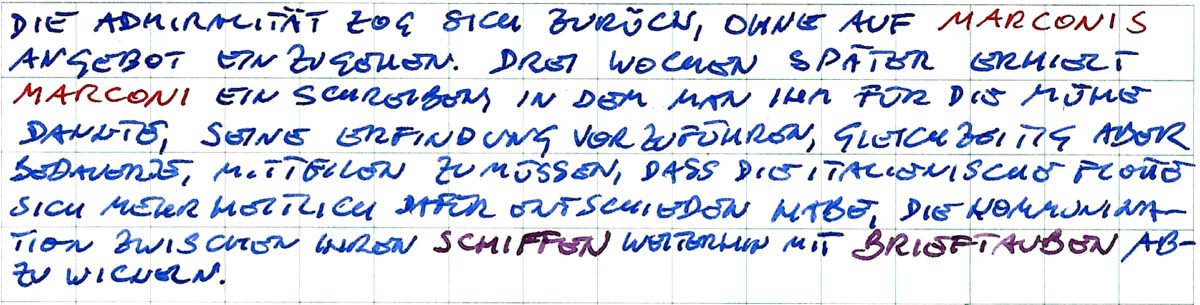 DIE ADMIRALITÄT ZOG SICH ZURÜCK, OHNE AUF MARCONIS
ANGEBOT EINZUGEHEN. DREI WOCHEN SPÄTER ERHIELT
MARCONI EIN SCHREIBEN, IN DEM MAN IHM FÜR DIE MÜHE
DANKTE, SEINE ERFINDUNG VORZUFÜHREN, GLEICHZEITIG ABER
BEDAUERTE, MITTEILEN ZU MÜSSEN, DASS DIE ITALIENISCHE FLOTTE
SICH MEHRHEITLICH DAFÜR ENTSCHIEDEN HABE, DIE KOMMUNIKA-
TION ZWISCHEN IHREN SCHIFFEN WEITERHIN MIT BRIEFTAUBEN AB-
ZUWICKELN.